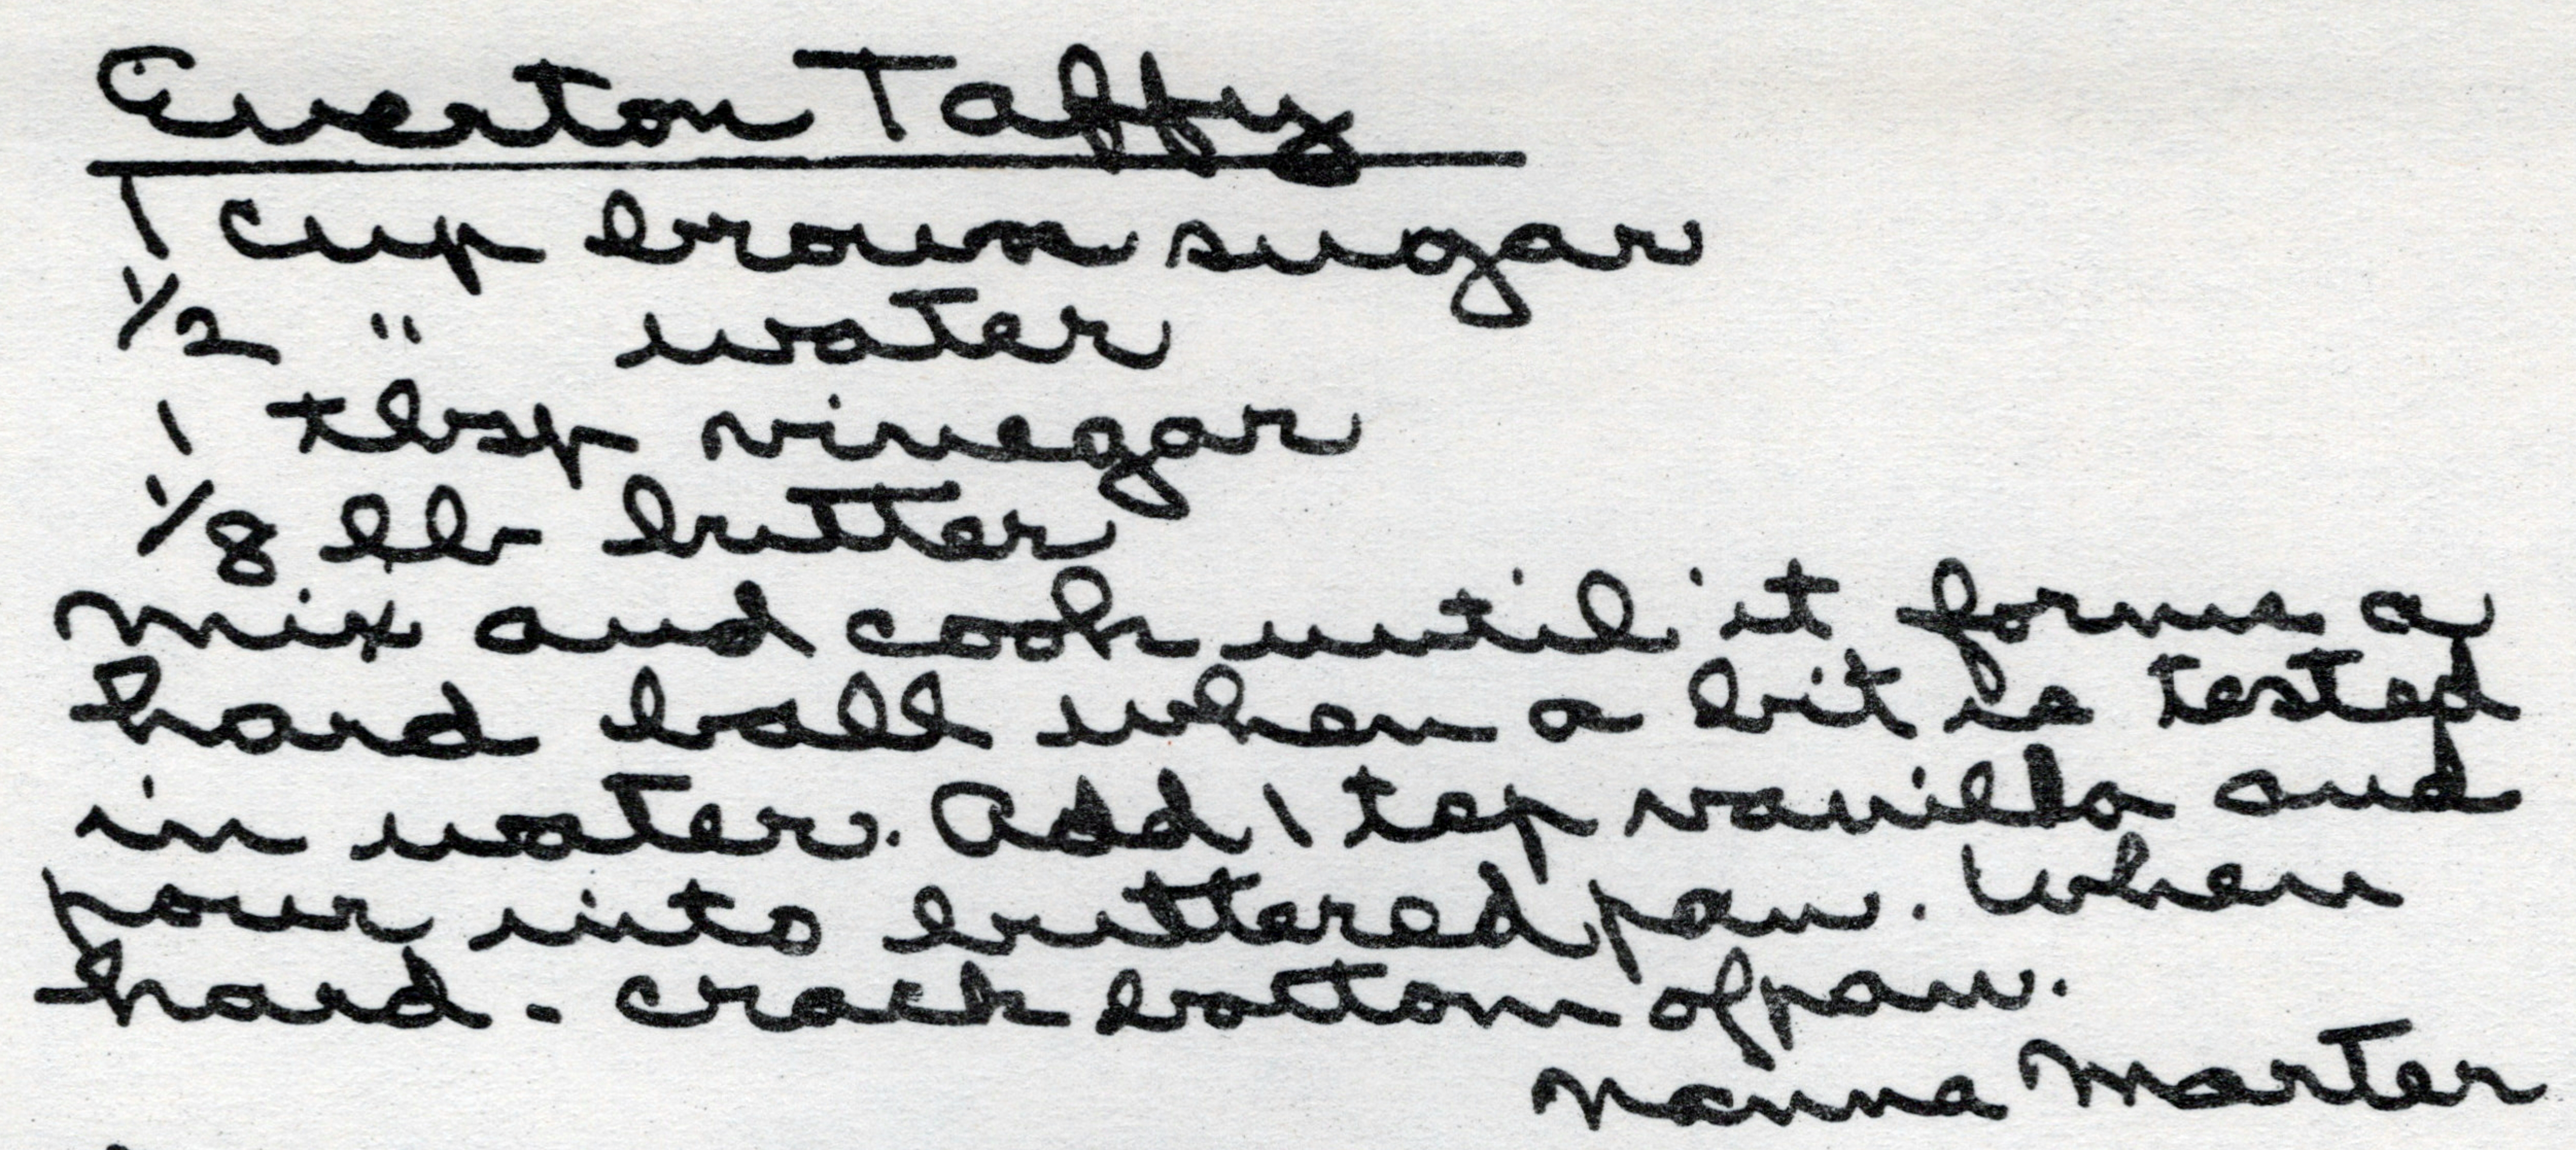 Everton Taffy
1 cup brown sugar
1/2 " water
1 tbsp vinegar
1/8 lb butter
Mix and cook until it forms a
hard ball when a bit is tested
in water. Add 1 tsp vanilla and
pour into buttered pan. When
hard - crack bottom of pan.
Nanna Marter